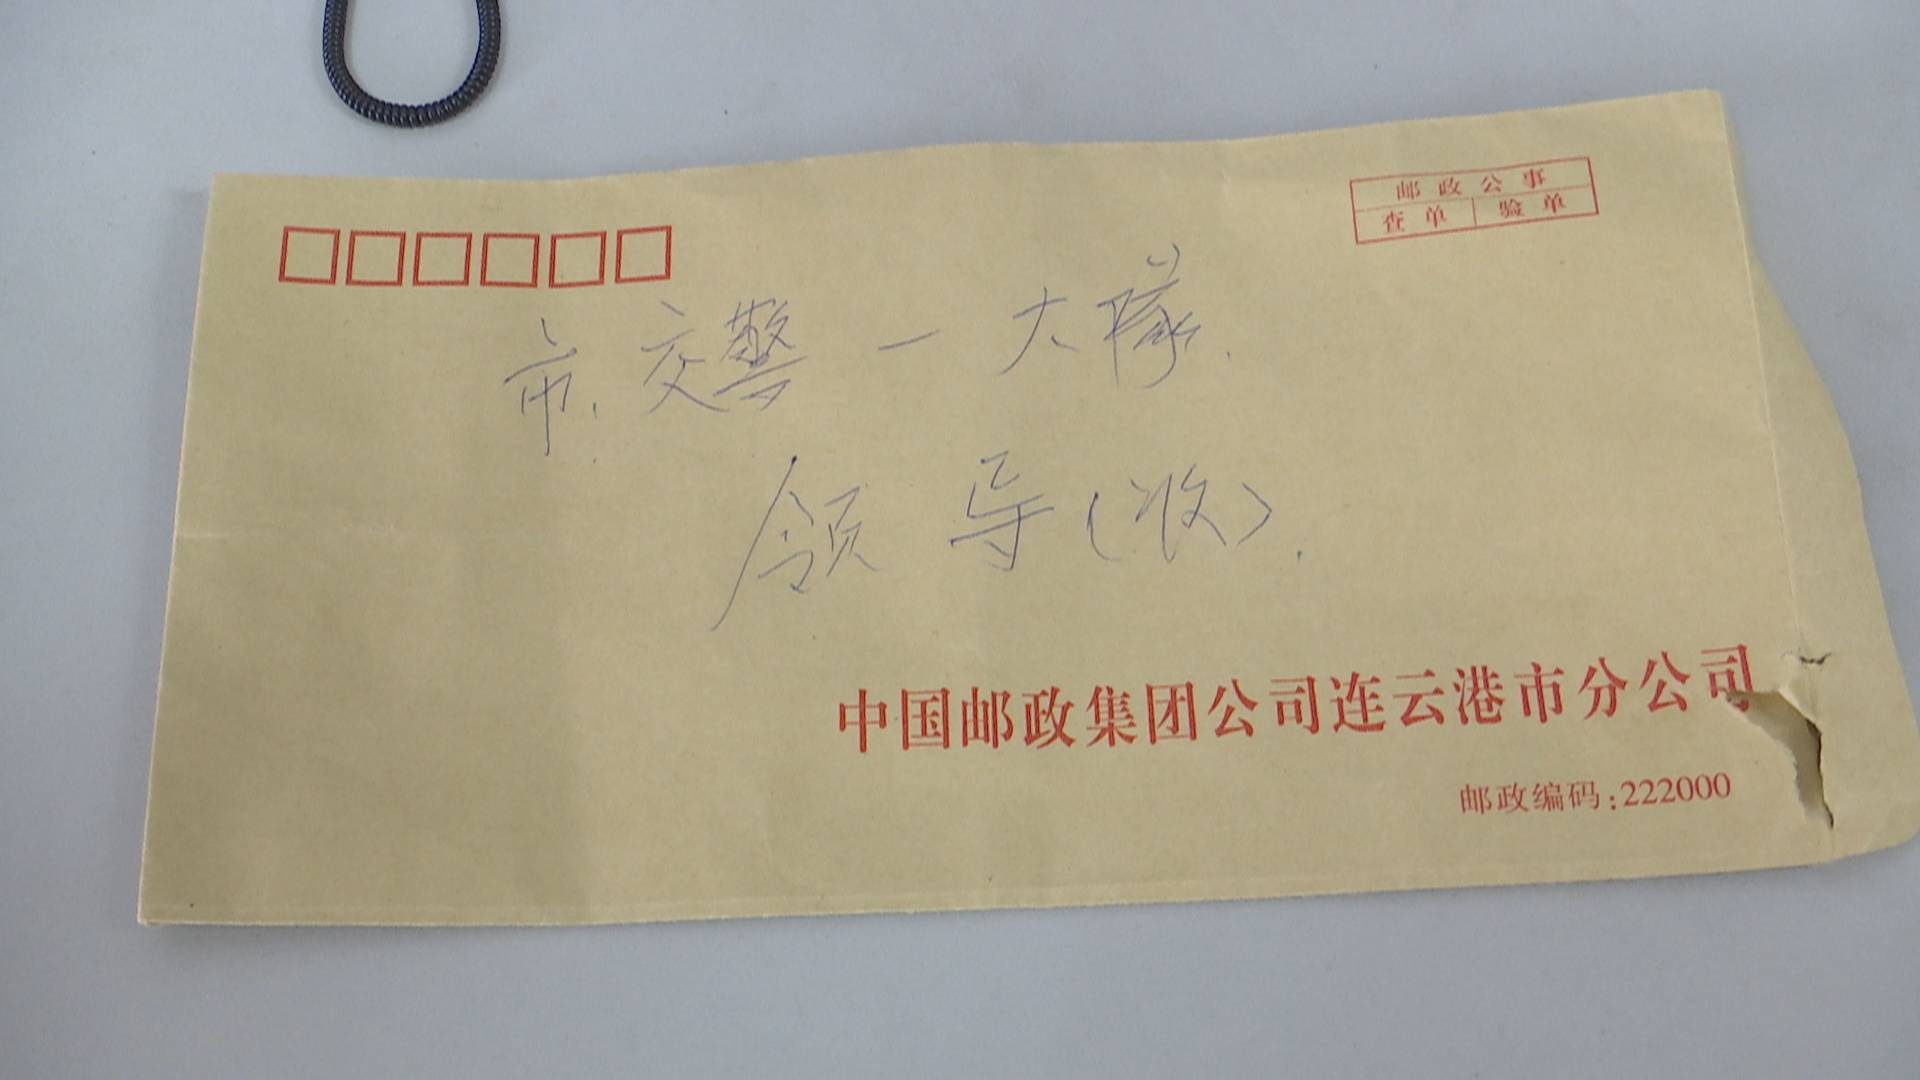 邮政公事
查单 验单
市交警一大隊.
领导(收).
中国邮政集团公司连云港市分公司
邮政编码:222000